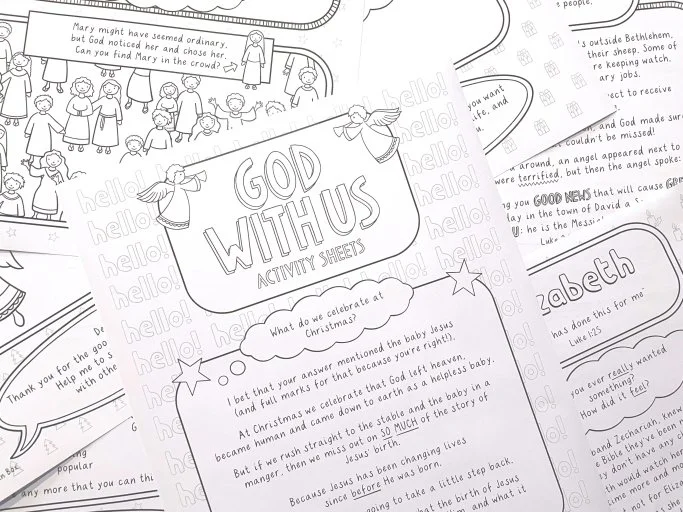 Mary might have seemed ordinary,
but God noticed her and chose her.
Can you find Mary in the crowd?
people,
's outside Bethlehem,
their sheep. Some of
re keeping watch.
ary jobs.
ect to receive
you want
life, and
u.
, and God made sure
couldn't be missed!
around, an angel appeared next to
were terrified, but then the angel spoke:
ng you GOOD NEWS that will cause
day in the town of David a S
U: he is the Messia
Luke
hello! hello! hello!
GOD
WITH US
ACTIVITY SHEETS
What do we celebrate at
Christmas?
I bet that your answer mentioned the baby Jesus
(and full marks for that because you're right!).
At Christmas we celebrate that God left heaven,
became human and came down to earth as a helpless baby.
But if we rush straight to the stable and the baby in a
manger, then we miss out on SO MUCH of the story of
Jesus' birth.
Because Jesus has been changing lives
since before He was born.
going to take a little step back.
that the birth of Jesus
and what it
zabeth
has done this for me"
Luke 1:25
you ever really wanted
something?
How did it feel?
band Zechariah, knew
e Bible they've been r
y don't have any ch
th would watch her
ime more and mo
not for Eliza
De
Thank you for the goo
Help me to s
with othe
ing
popular
any more that you can thi